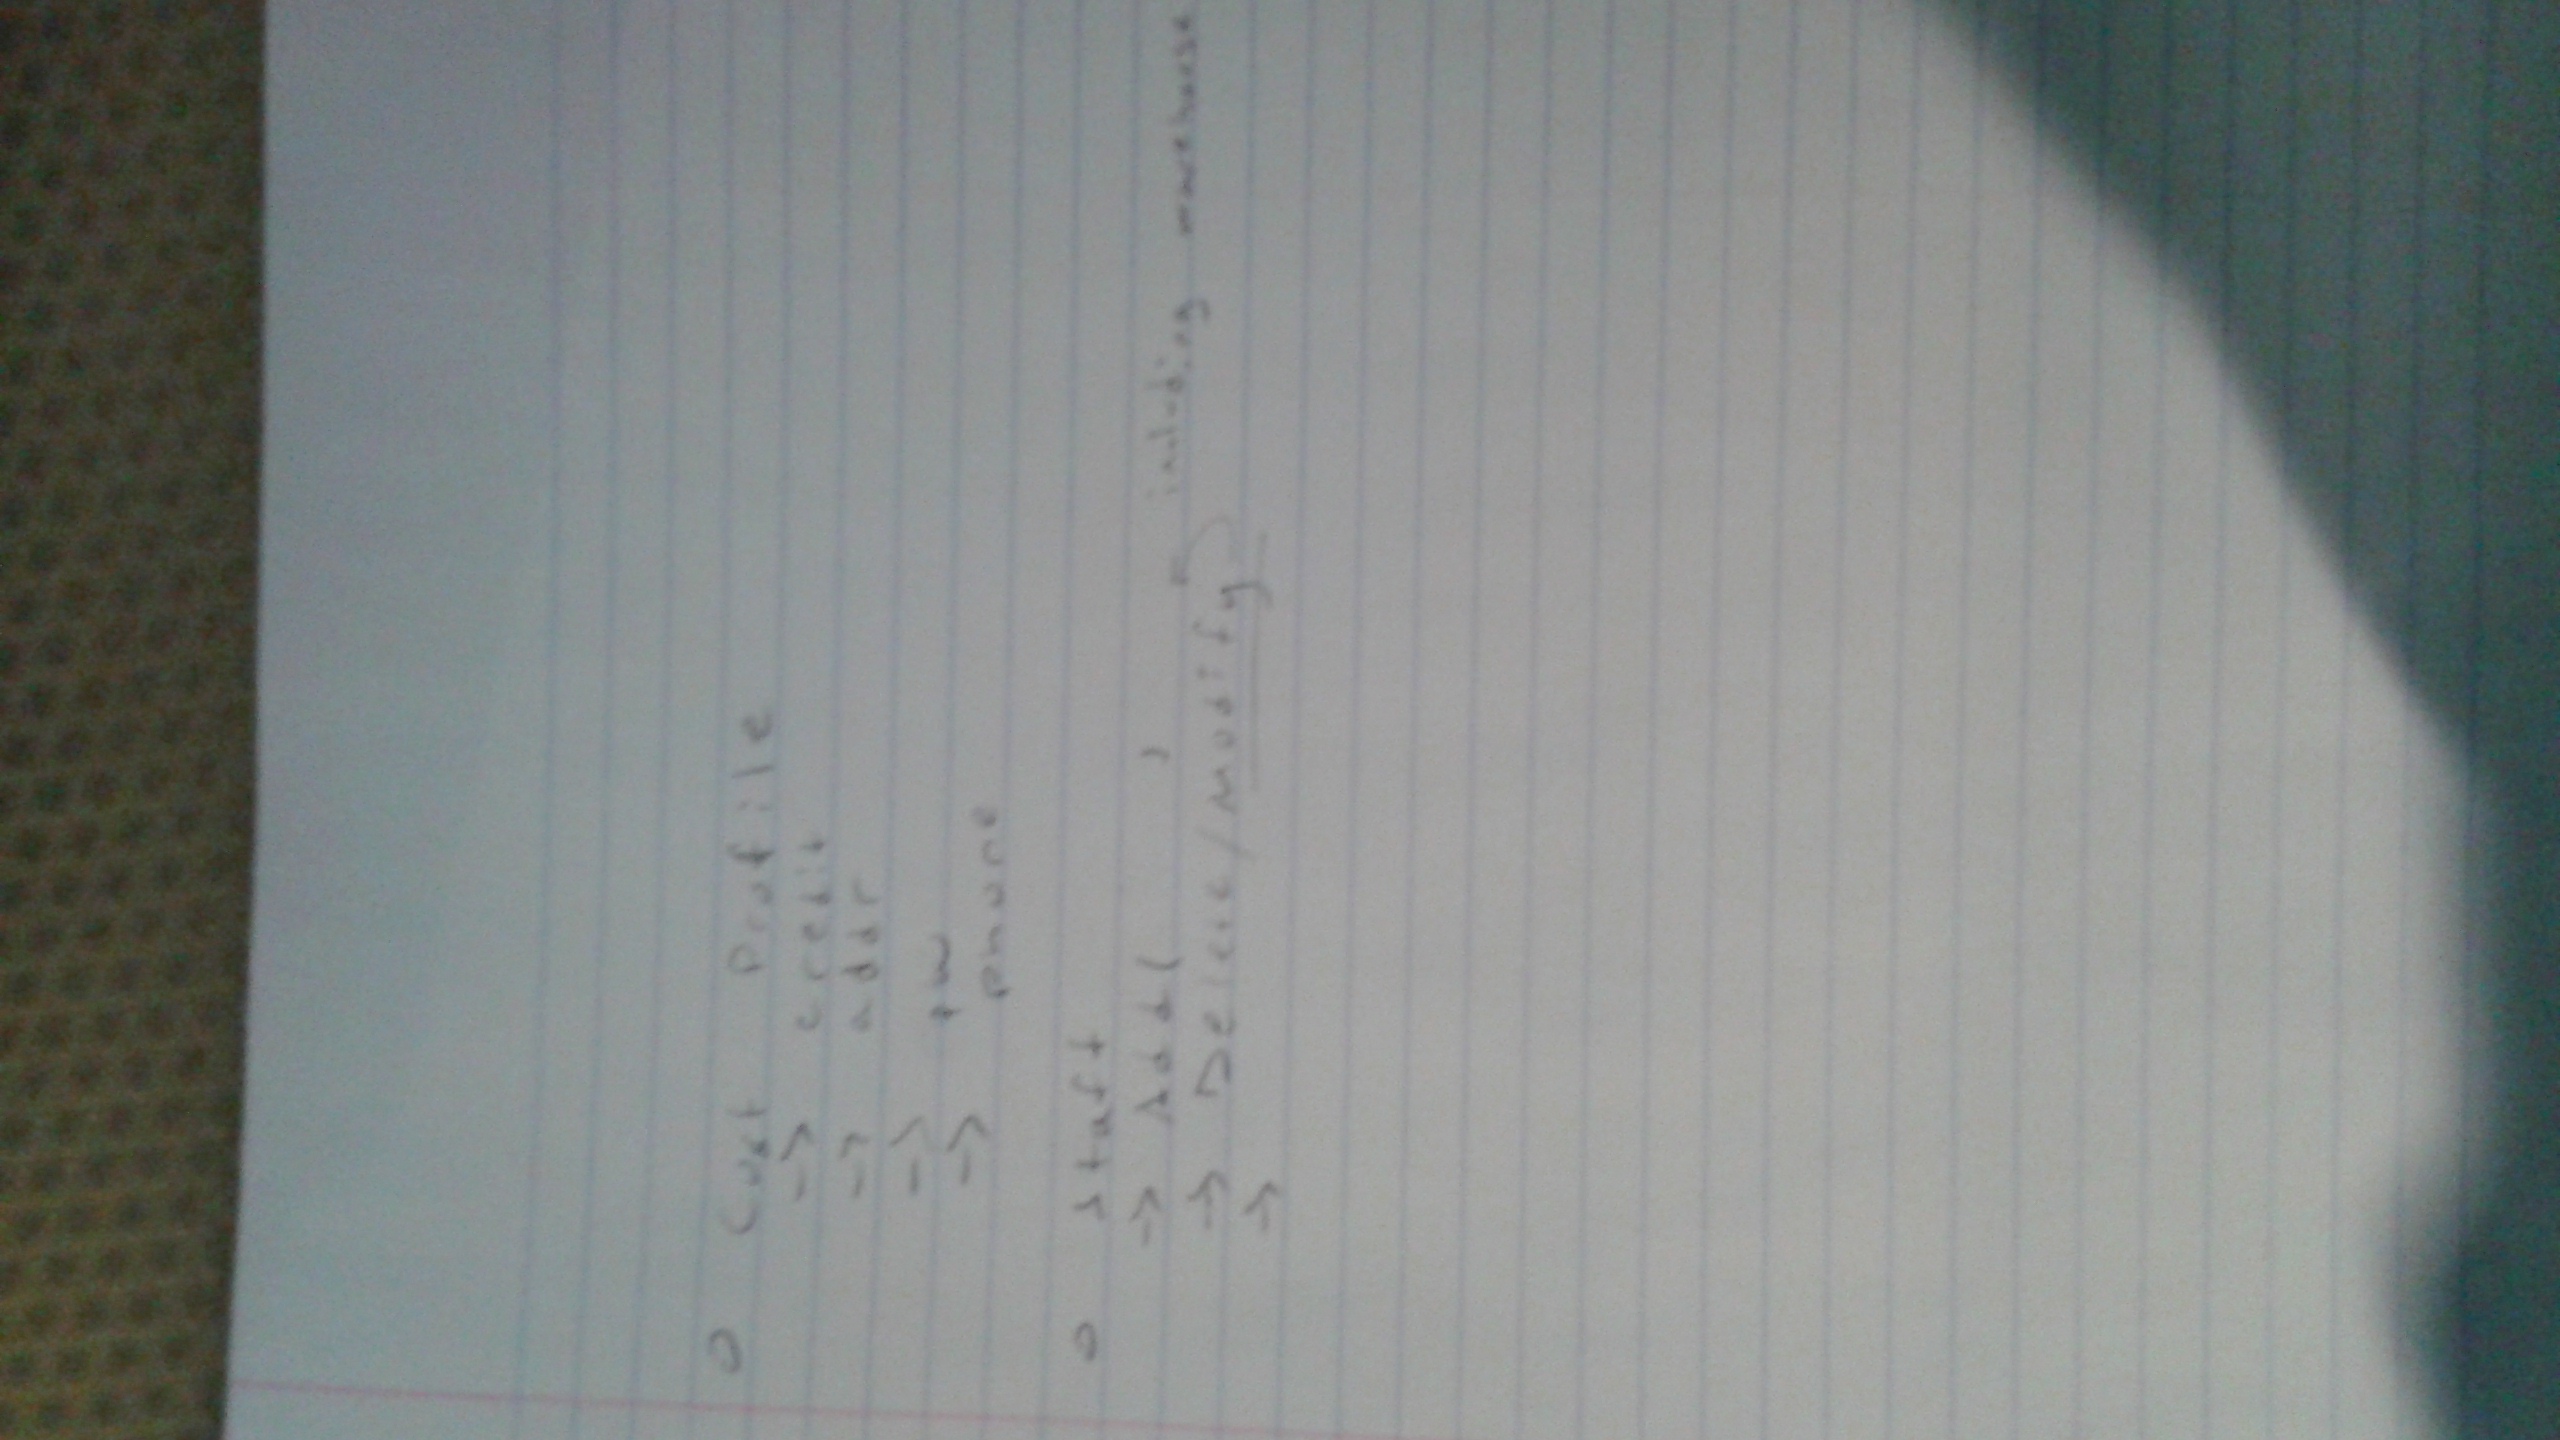 o Cust Profile
-> credit
-> addr
-> pw
-> phone
o Staff
-> Add( )
-> Delete/Modify including warehouse
->